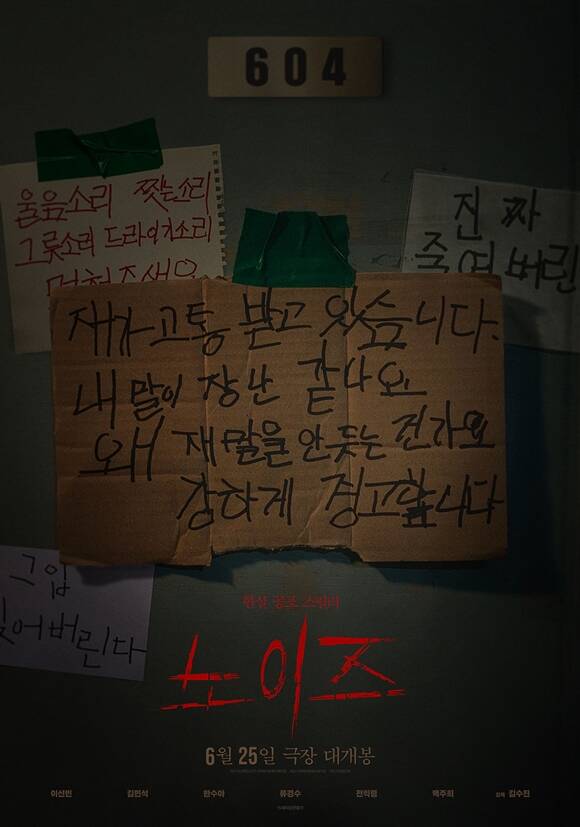 604
울음소리 찢는소리
그릇소리 드라이기소리
멈춰주세요
진짜
죽여버린
재가 고통 받고 있습니다.
내 말이 장난 같나요
왜 재 말을 안 듣는 건가요
강하게 경고합니다
그 입
찢어버린다
현실 공포 스릴러
노이즈
6월 25일 극장 대개봉
이선빈 김민석 한수아 류경수 전익령 백주희 감독 김수진